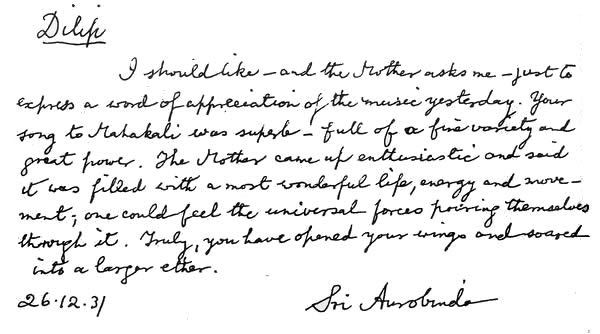 Dilip
I should like – and the Mother asks me – just to
express a word of appreciation of the music yesterday. Your
song to Mahakali was superb – full of a fine variety and
great power. The Mother came up enthusiastic and said
it was filled with a most wonderful life, energy and move-
ment; one could feel the universal forces pouring themselves
through it. Truly, you have opened your wings and soared
into a larger ether.
26.12.31 Sri Aurobindo